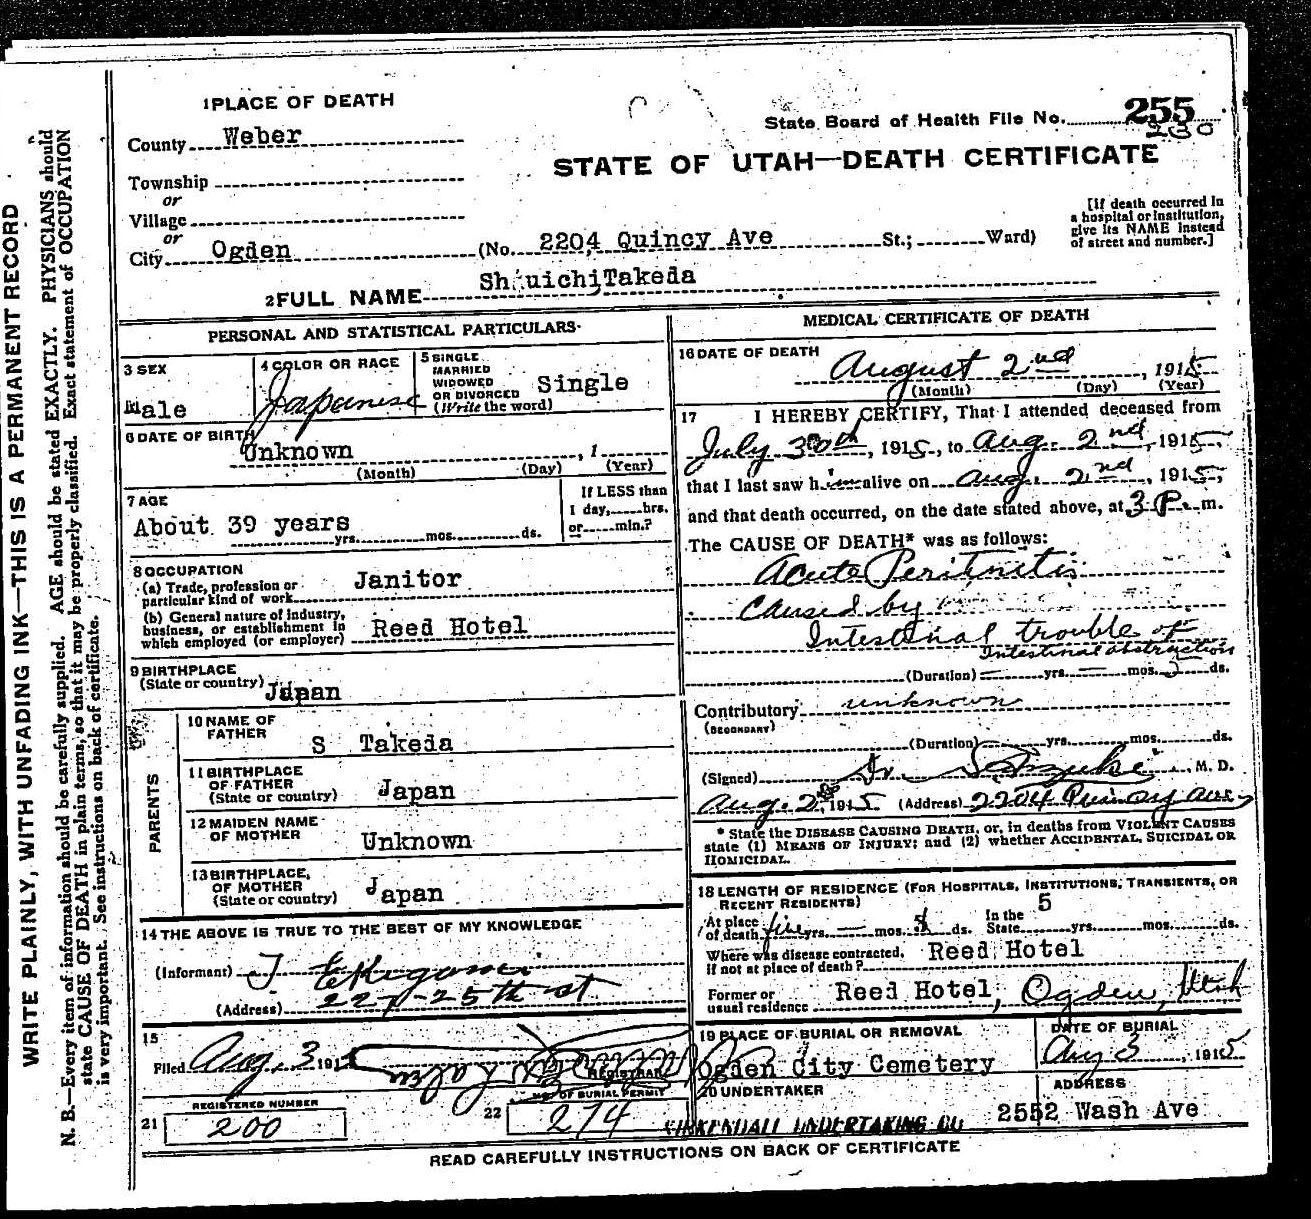 1 PLACE OF DEATH
County Weber
Township
or
Village
or
City Ogden (No. 2204 Quincy Ave St.; Ward)
State Board of Health File No. 255
260
STATE OF UTAH—DEATH CERTIFICATE
[If death occurred in
a hospital or institution,
give its NAME instead
of street and number.]
2 FULL NAME Sh uichi Takeda
PERSONAL AND STATISTICAL PARTICULARS
3 SEX
Male
4 COLOR OR RACE
Japanese
5 SINGLE
MARRIED
WIDOWED
OR DIVORCED
(Write the word)
Single
6 DATE OF BIRTH
Unknown , 1
(Month) (Day) (Year)
7 AGE
About 39 years
yrs. mos. ds.
If LESS than
1 day, hrs.
or min.?
8 OCCUPATION
(a) Trade, profession or
particular kind of work Janitor
(b) General nature of industry,
business, or establishment in
which employed (or employer) Reed Hotel
9 BIRTHPLACE
(State or country) Japan
PARENTS
10 NAME OF
FATHER S Takeda
11 BIRTHPLACE
OF FATHER
(State or country) Japan
12 MAIDEN NAME
OF MOTHER Unknown
13 BIRTHPLACE,
OF MOTHER
(State or country) Japan
14 THE ABOVE IS TRUE TO THE BEST OF MY KNOWLEDGE
(Informant) T.
(Address) 25th st
15
Filed Aug. 3 191
REGISTRAR
21 REGISTERED NUMBER
200
22 NO. OF BURIAL PERMIT
274
MEDICAL CERTIFICATE OF DEATH
16 DATE OF DEATH
August 2nd , 1915
(Month) (Day) (Year)
17 I HEREBY CERTIFY, That I attended deceased from
July 30th, 1915, to Aug. 2nd, 1915,
that I last saw him alive on Aug. 2nd, 1915,
and that death occurred, on the date stated above, at 3 P. m.
The CAUSE OF DEATH* was as follows:
Acute Peritinitis
caused by
Intestinal trouble of
Intestinal obstruction
(Duration) — yrs. — mos. 3 ds.
Contributory unknown
(SECONDARY)
(Duration) yrs. mos. ds.
(Signed) Dr. M. D.
Aug. 2, 1915 (Address) 2204 Quincy Ave
* State the DISEASE CAUSING DEATH, or, in deaths from VIOLENT CAUSES
state (1) MEANS OF INJURY; and (2) whether ACCIDENTAL, SUICIDAL OR
HOMICIDAL.
18 LENGTH OF RESIDENCE (FOR HOSPITALS, INSTITUTIONS, TRANSIENTS, OR
RECENT RESIDENTS)
At place
of death five yrs. — mos. ds. In the
State 5 yrs. mos. ds.
Where was disease contracted,
If not at place of death? Reed Hotel
Former or
usual residence Reed Hotel, Ogden, Utah
19 PLACE OF BURIAL OR REMOVAL
Ogden City Cemetery
DATE OF BURIAL
Aug 3, 1915
20 UNDERTAKER
KIRKENDALL UNDERTAKING CO
ADDRESS
2552 Wash Ave
READ CAREFULLY INSTRUCTIONS ON BACK OF CERTIFICATE
WRITE PLAINLY, WITH UNFADING INK—THIS IS A PERMANENT RECORD
N. B.—Every item of information should be carefully supplied. AGE should be stated EXACTLY. PHYSICIANS should
state CAUSE OF DEATH in plain terms, so that it may be properly classified. Exact statement of OCCUPATION
is very important. See instructions on back of certificate.